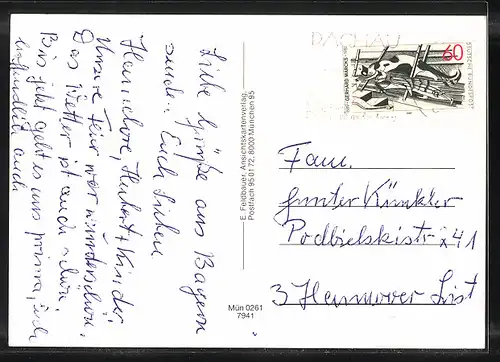 Liebe Grüße aus Bayern
senden Euch Lieben
Hannelore, Hubert + Kinder
Unsere Tour war wunderschön,
Das Wetter ist auch schön.
Bis jetzt geht es uns prima, ich
auch
E. Feldbauer, Ansichtskartenverlag,
Postfach 95 01 72, 8000 München 95
Mün 0261
7941
DACHAU
60
DEUTSCHE BUNDESPOST
GERHARD MARCKS
Fam.
Günter Künkler
Podbielskistr. 241
3 Hannover List